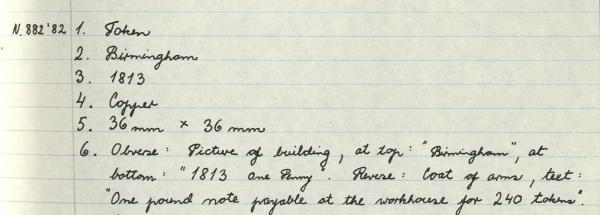 N. 882 '82 1. Token
2. Birmingham
3. 1813
4. Copper
5. 36 mm × 36 mm
6. Obverse: Picture of building, at top: "Birmingham", at
bottom: "1813 one Penny". Reverse: Coat of arms, text:
"One pound note payable at the workhouse for 240 tokens".